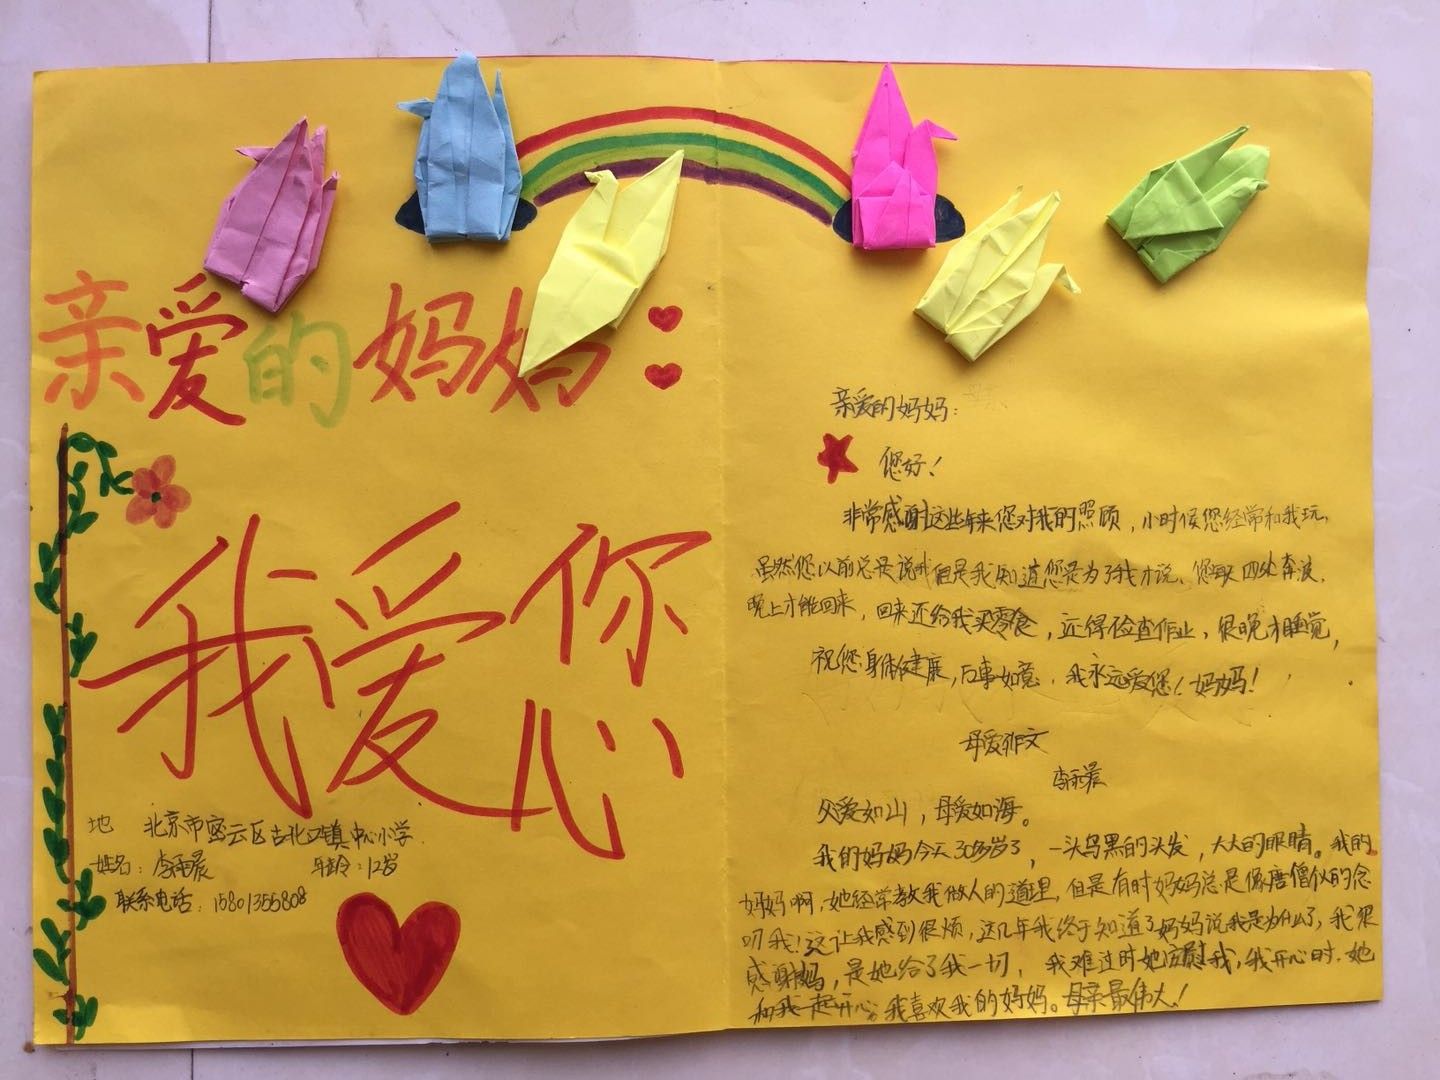 亲爱的妈妈：
我爱你
心
地 北京市密云区古北口镇中心小学
姓名：李雨晨 年龄：12岁
联系电话：15801355808
亲爱的妈妈：
您好！
非常感谢这些年来您对我的照顾，小时候您经常和我玩，
虽然您以前总是说我但是我知道您是为了我才说、您取四处奔波，
晚上才能回来，回来还给我买零食，还得检查作业，很晚才睡觉，
祝您身体健康，万事如意，我永远爱您！妈妈！
母爱作文
李雨晨
父爱如山，母爱如海。
我的妈妈今天30多岁了，一头乌黑的头发，大大的眼睛。我的
妈妈啊，她经常教我做人的道理，但是有时妈妈总是像唐僧似的念
叨我！这让我感到很烦，这几年我终于知道了妈妈说我是为什么了，我很
感谢妈，是她给了我一切，我难过时她安慰我，我开心时，她
和我一起开心。我喜欢我的妈妈。母亲最伟大！